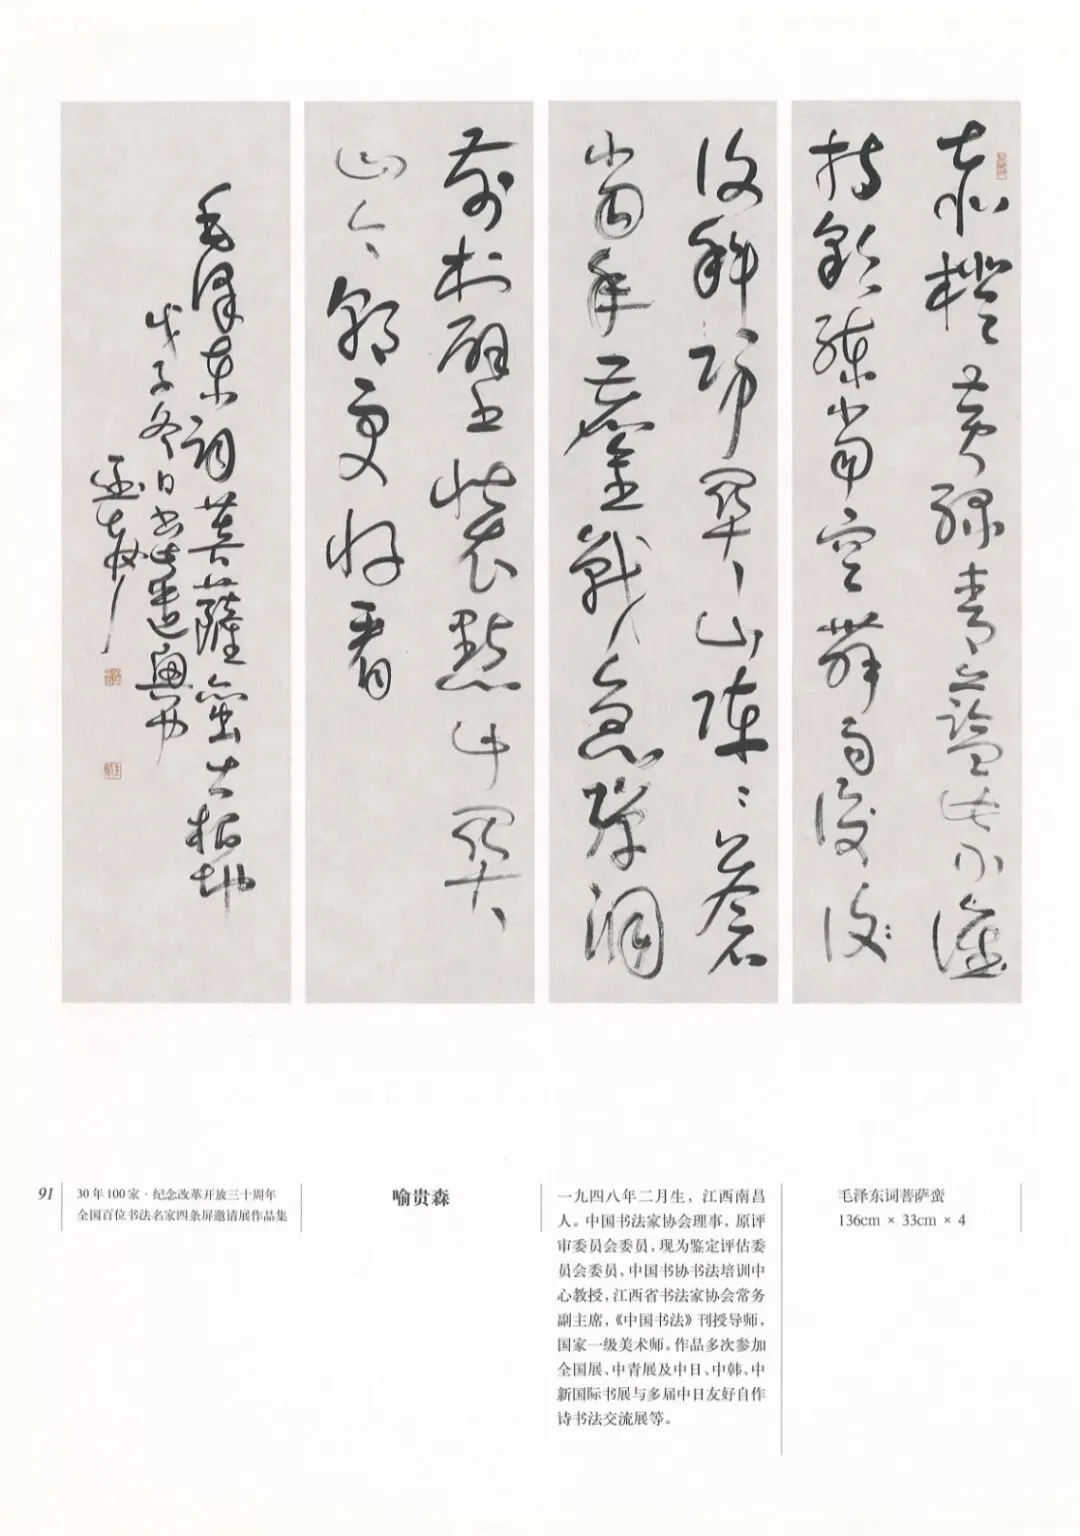 赤橙黃綠青藍紫誰
持彩練當空舞雨後復
復斜陽關山陣〻蒼
當年鏖戰急彈洞
前村壁裝點此關
山今朝更好看
毛澤東詞菩薩蠻大柏地
戊子冬日書此遣興
91
30年100家·纪念改革开放三十周年
全国百位书法名家四条屏邀请展作品集
喻贵森
一九四八年二月生，江西南昌
人。中国书法家协会理事，原评
审委员会委员，现为鉴定评估委
员会委员，中国书协书法培训中
心教授，江西省书法家协会常务
副主席，《中国书法》刊授导师，
国家一级美术师。作品多次参加
全国展、中青展及中日、中韩、中
新国际书展与多届中日友好自作
诗书法交流展等。
毛泽东词菩萨蛮
136cm × 33cm × 4